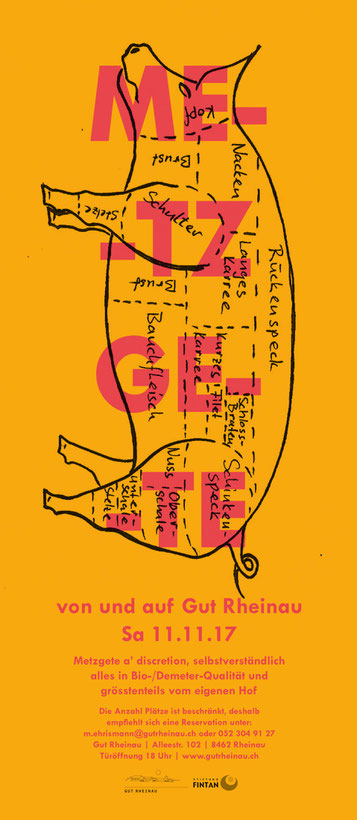 ME-
-TZ
GE-
-TE
Kopf
Brust
Nacken
Stelze
Schulter
Langes
Karree
Rückenspeck
Brust
Bauchfleisch
Kurzes
Karree
Filet
Schloss-
Braten
Schinken-
speck
Nuss
Ober-
schale
Unter-
schale
Stelze
von und auf Gut Rheinau
Sa 11.11.17
Metzgete a' discretion, selbstverständlich
alles in Bio-/Demeter-Qualität und
grösstenteils vom eigenen Hof
Die Anzahl Plätze ist beschränkt, deshalb
empfiehlt sich eine Reservation unter:
m.ehrismann@gutrheinau.ch oder 052 304 91 27
Gut Rheinau | Alleestr. 102 | 8462 Rheinau
Türöffnung 18 Uhr | www.gutrheinau.ch
GUT RHEINAU
STIFTUNG
FINTAN